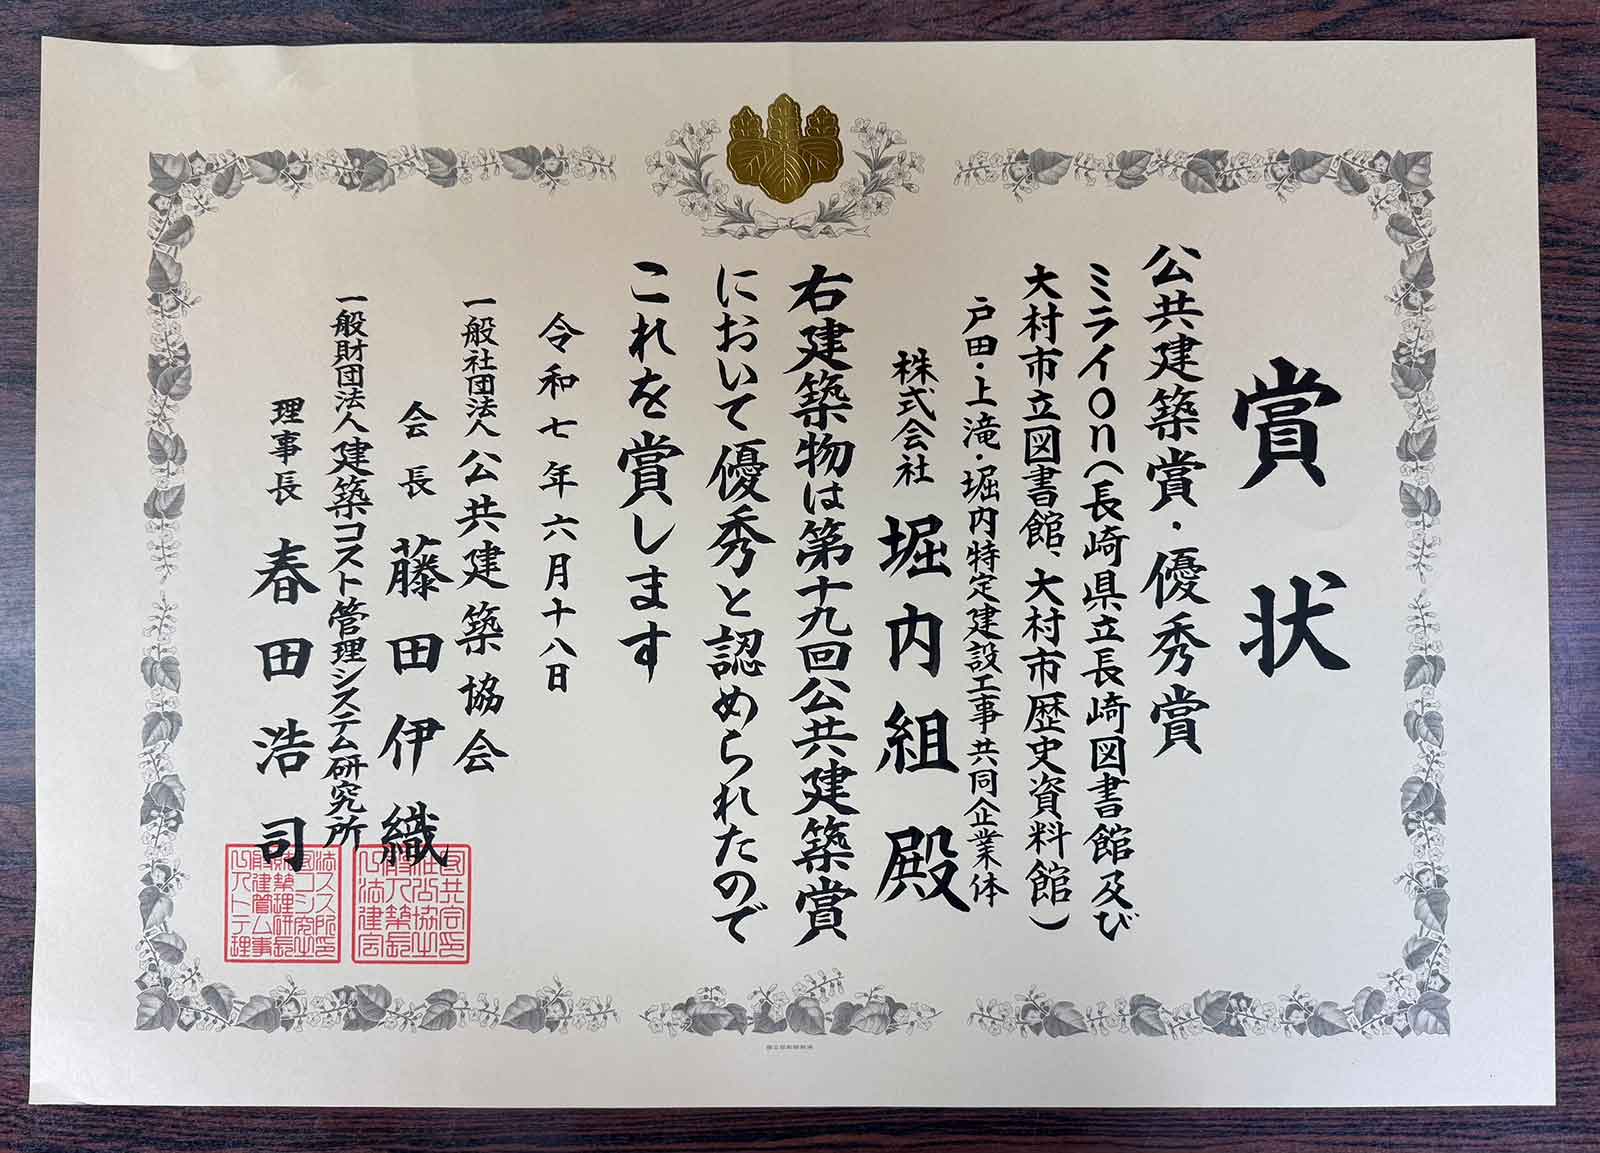 賞状
公共建築賞・優秀賞
ミライon(長崎県立長崎図書館及び
大村市立図書館、大村市歴史資料館)
戸田・上滝・堀内特定建設工事共同企業体
株式会社 堀内組殿
右建築物は第十九回公共建築賞
において優秀と認められたので
これを賞します
令和七年六月十八日
一般社団法人 公共建築協会
会長 藤田伊織
一般財団法人 建築コスト管理システム研究所
理事長 春田浩司